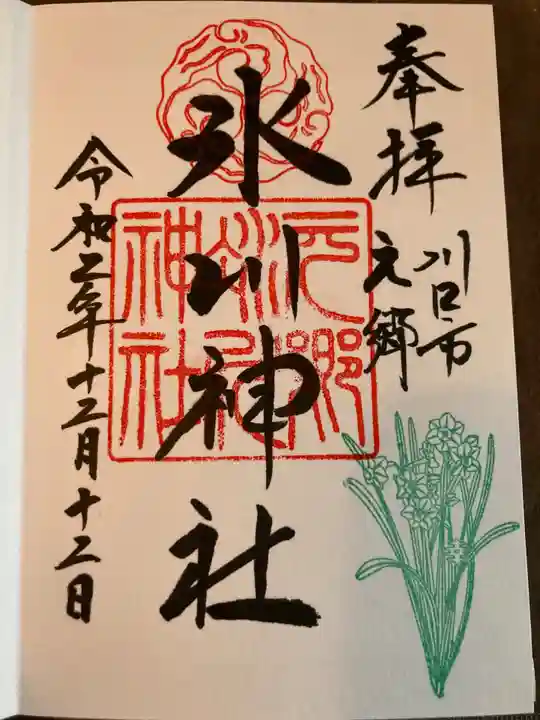 奉拝
川口市
元郷
氷川神社
元郷
氷川
神社
令和二年十二月十二日